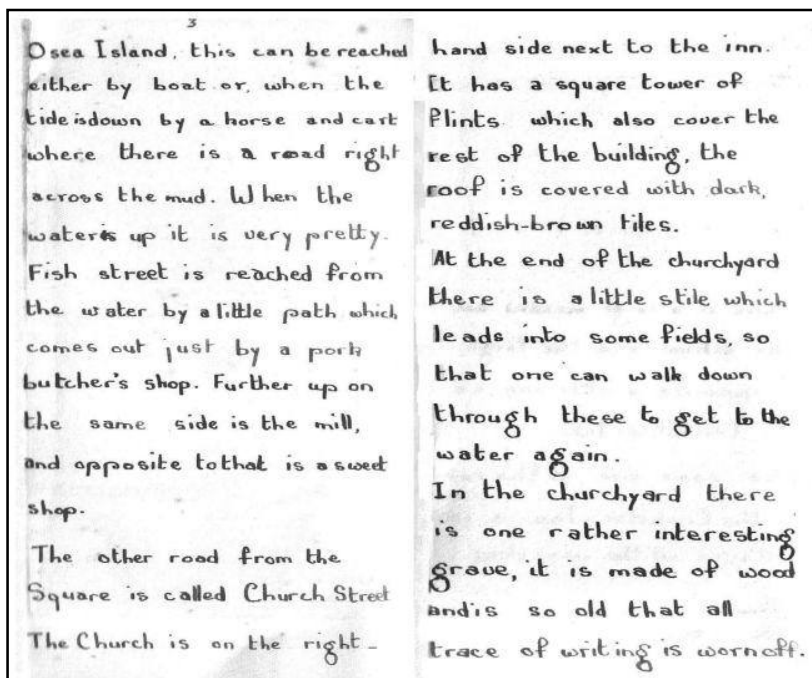 3
Osea Island, this can be reached
either by boat or, when the
tide is down by a horse and cart
where there is a road right
across the mud. When the
water is up it is very pretty.
Fish street is reached from
the water by a little path which
comes out just by a pork
butcher's shop. Further up on
the same side is the mill,
and opposite to that is a sweet
shop.
The other road from the
Square is called Church Street
The Church is on the right-
hand side next to the inn.
It has a square tower of
flints which also cover the
rest of the building, the
roof is covered with dark,
reddish-brown tiles.
At the end of the churchyard
there is a little stile which
leads into some fields, so
that one can walk down
through these to get to the
water again.
In the churchyard there
is one rather interesting
grave, it is made of wood
and is so old that all
trace of writing is worn off.